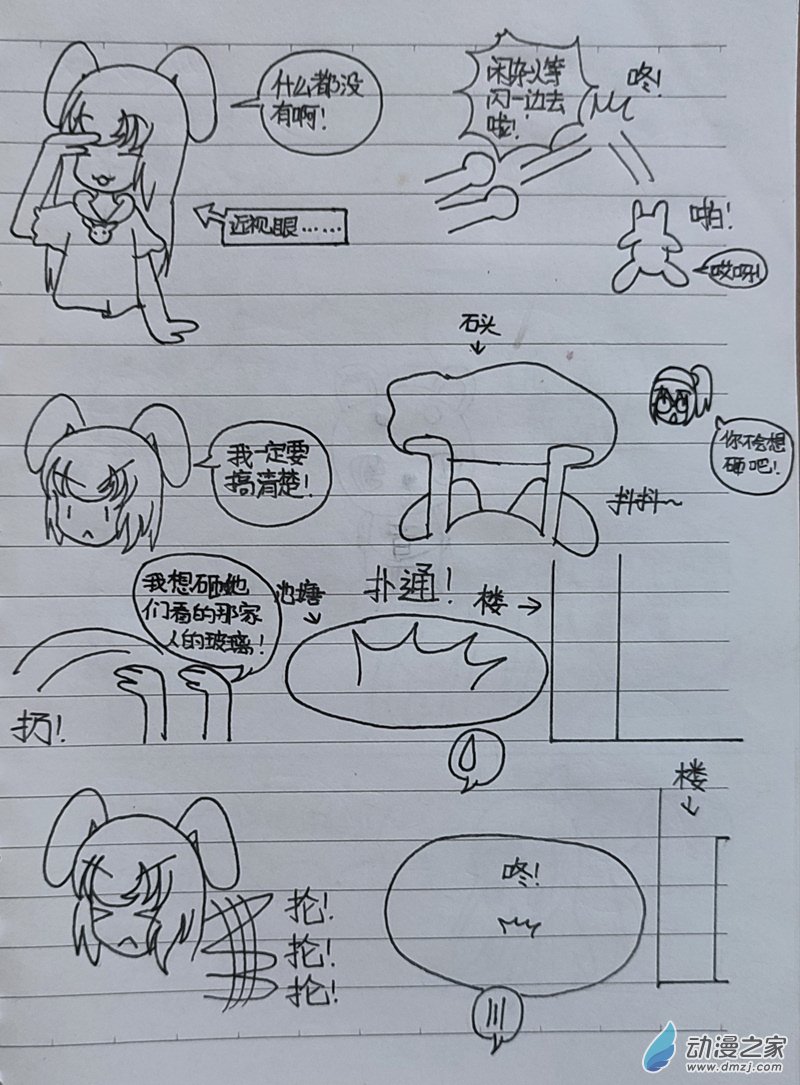 什么都没
有啊！
近视眼……
闲杂人等
闪一边去
啦！
咚！
啪！
哎呀！
我一定要
搞清楚！
石头
↓
你不会想
砸吧！
抖抖~
我想砸她
们看的那家
人的玻璃！
扔！
池塘
扑通！
楼→
抡！
抡！
抡！
咚！
楼
↓
动漫之家
www.dmzj.com